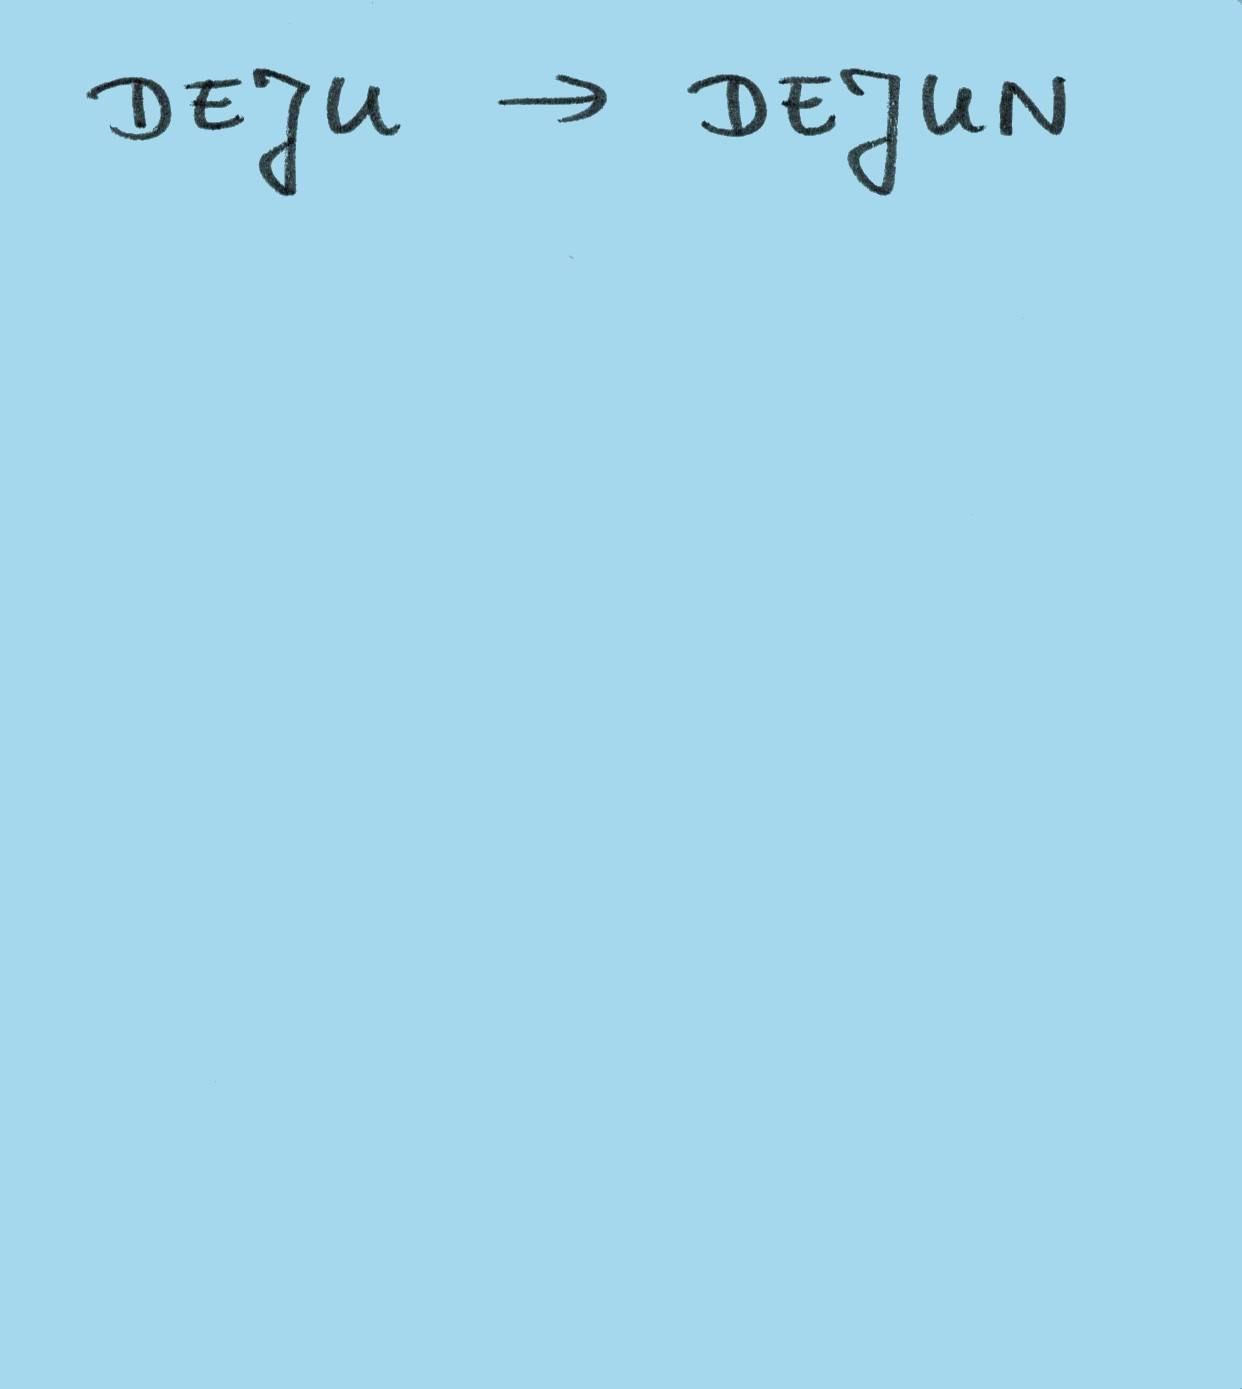 DEJU → DEJUN